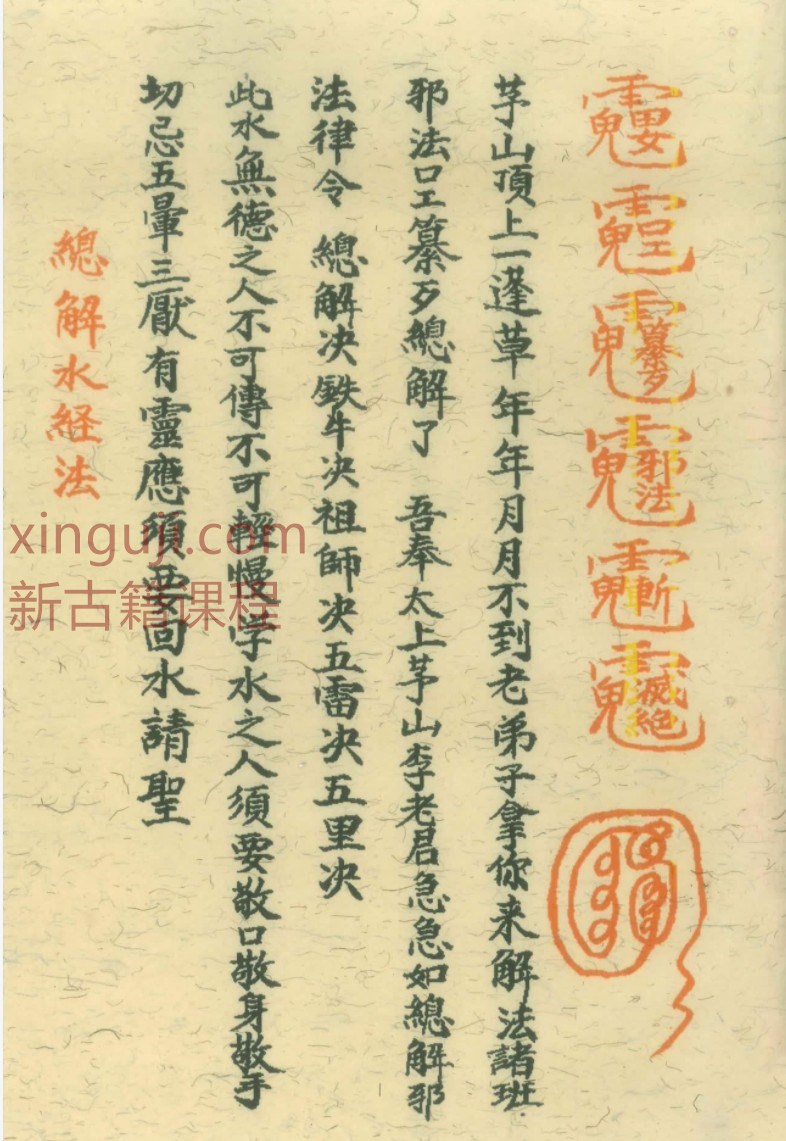 芓山頂上一逢草年年月月不到老弟子拿你来解法諸班
邪法口工纂歹總解了 吾奉太上芓山李老君急急如總解邪
法律令 總解决鉄牛决祖師决五雷决五里决
此水無德之人不可傳不可輕慢学水之人須要敬口敬身敬手
切忌五暈三厭有靈應須要回水請聖
總解水経法
xinguji.com
新古籍课程